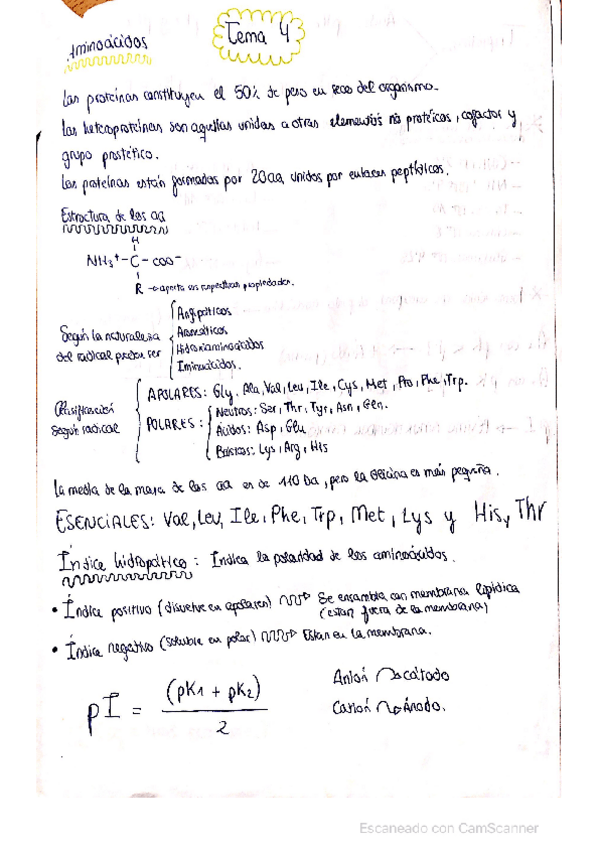 Aminoácidos
Tema 4
Las proteínas constituyen el 50% de peso en seco del organismo.
Las heteroproteínas son aquellas unidas a otros elementos no protéicos, cofactor y
grupo prostético.
Las proteínas están formados por 20aa unidos por enlaces peptídicos.
Estructura de los aa
H
NH3+ - C - COO-
R → aporta sus respectivas propiedades.
Según la naturaleza
del radical pueden ser
Anfipáticos
Aromáticos
Hidroxiaminoácidos
Iminoácidos.
Clasificación
según radical
APOLARES: Gly, Ala, Val, Leu, Ile, Cys, Met, Pro, Phe, Trp.
POLARES:
Neutros: Ser, Thr, Tyr, Asn, Gln.
Ácidos: Asp, Glu
Básicos: Lys, Arg, His
La media de la masa de los aa es de 110 Da, pero la glicina es más pequeña.
ESENCIALES: Val, Leu, Ile, Phe, Trp, Met, Lys y His, Thr
Índice hidropático: Indica la polaridad de los aminoácidos.
• Índice positivo (disuelve en apolares) → Se ensambla con membrana lipídica
(están fuera de la membrana)
• Índice negativo (soluble en polar) → Están en la membrana.
pI = (pK1 + pK2) / 2
Anión → cátodo
Catión → Ánodo.
Escaneado con CamScanner